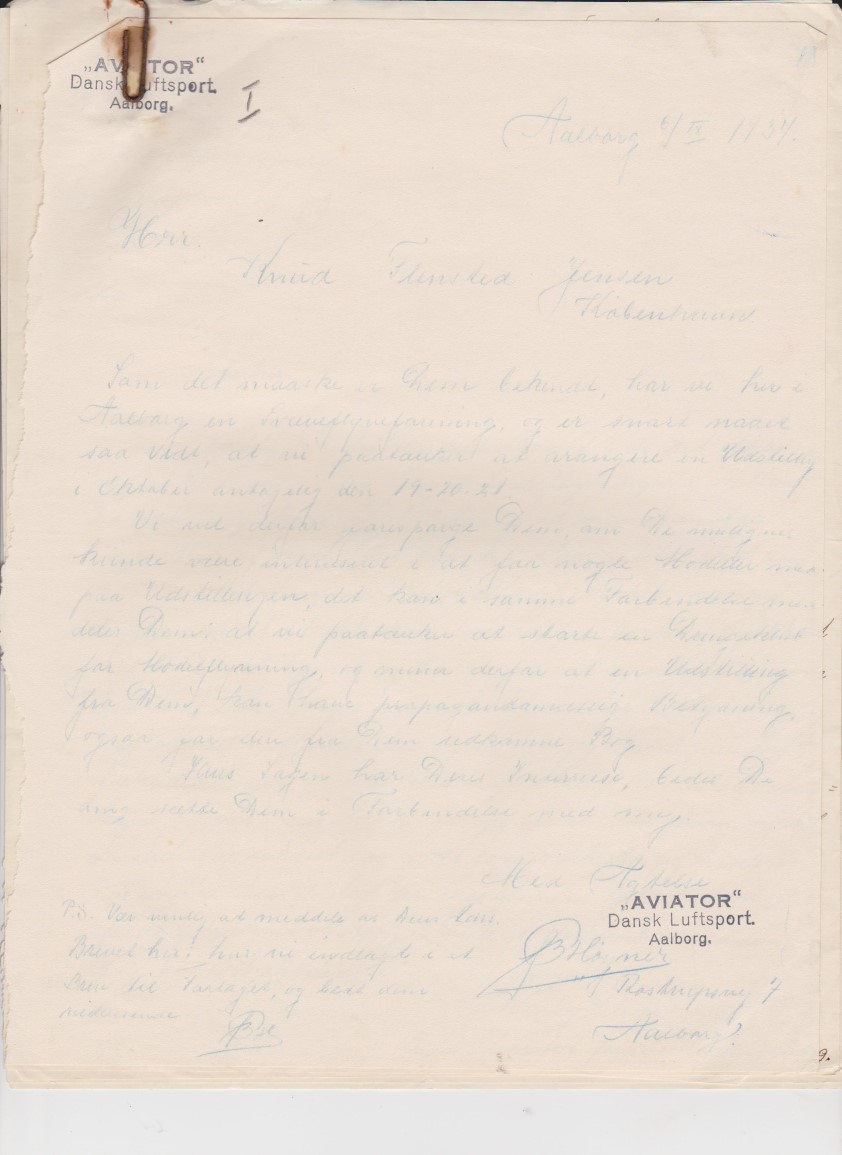 „AVIATOR“
Dansk Luftsport.
Aalborg.
I
Aalborg 6/IX 1934.
Hrr.
Knud Flensted Jensen
København
Som det maaske er Dem bekendt, har vi her i
Aalborg en Svæveflyveforening, og er snart naaet
saa vidt, at vi paatænker at arangere en Udstilling
i Oktober antagelig den 19-20-21
Vi vil derfor forespørge Dem, om De muligvis
kunde være interesseret i at faa nogle Modeller med
paa Udstillingen, det kan i samme Forbindelse med-
dele Dem, at vi paatænker at starte en
for og mener derfor at en Udstilling
fra Dem, kan have propagandamæssig Betydning,
ogsaa for den fra Dem udkomne Bog
Hvis Sagen har Deres Interesse, bedes De
sætte Dem i Forbindelse med mig.
Med Agtelse
„AVIATOR“
Dansk Luftsport.
Aalborg.
Rostrupsvej 7
Aalborg
P.S. Vær venlig at meddele os Deres
Brevet har vi indlagt i et
Brev til Forlaget, og bedt dem
videresende